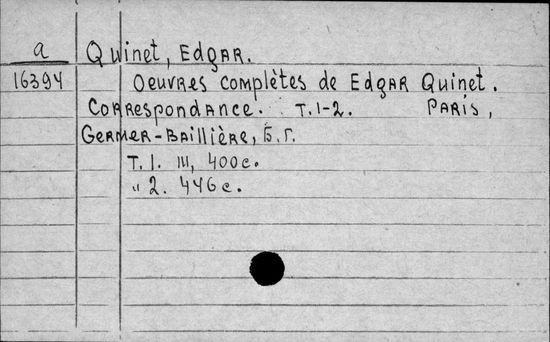 a
16394
Quinet, Edgar.
Oeuvres complètes de Edgar Quinet.
Correspondance. T.1-2. Paris,
Germer-Baillière, б.г.
T. 1. III, 400c.
" 2. 446c.